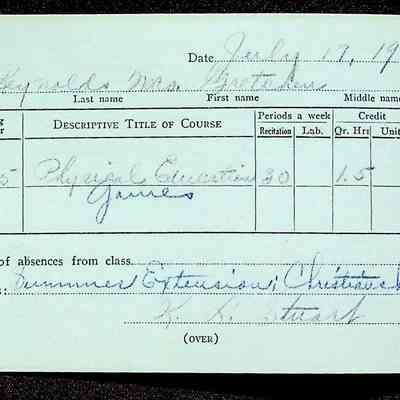 Date July 17, 19
Reynolds Mrs. Gretchen
Last name First name Middle name
Periods a week Credit
g Descriptive Title of Course
r Recitation Lab. Qr. Hrs Unit
5 Physical Education 30 1.5
Games
of absences from class
s: Summer Extension; Christians
K. K. Stuart
(OVER)